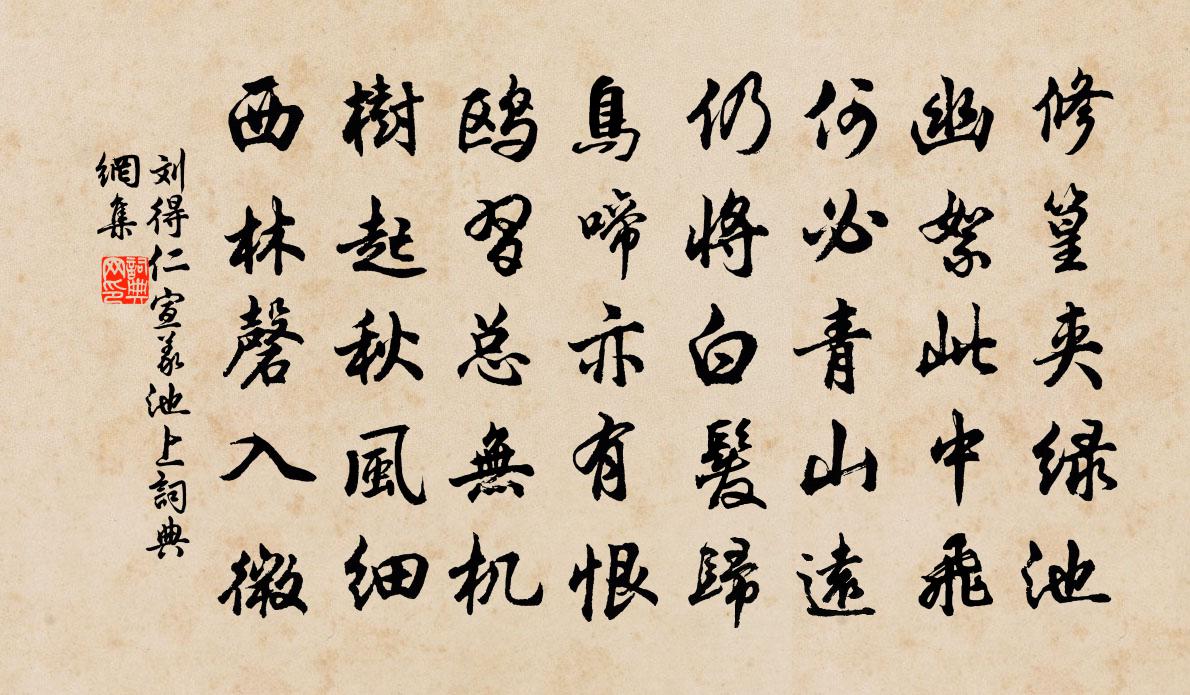 修篁夾緑池
幽絮此中飛
何必青山遠
仍將白髮歸
鳥啼亦有恨
鷗習总無机
樹起秋風細
西林磬入微
刘得仁宣義池上詞典
網集
詞典
网印